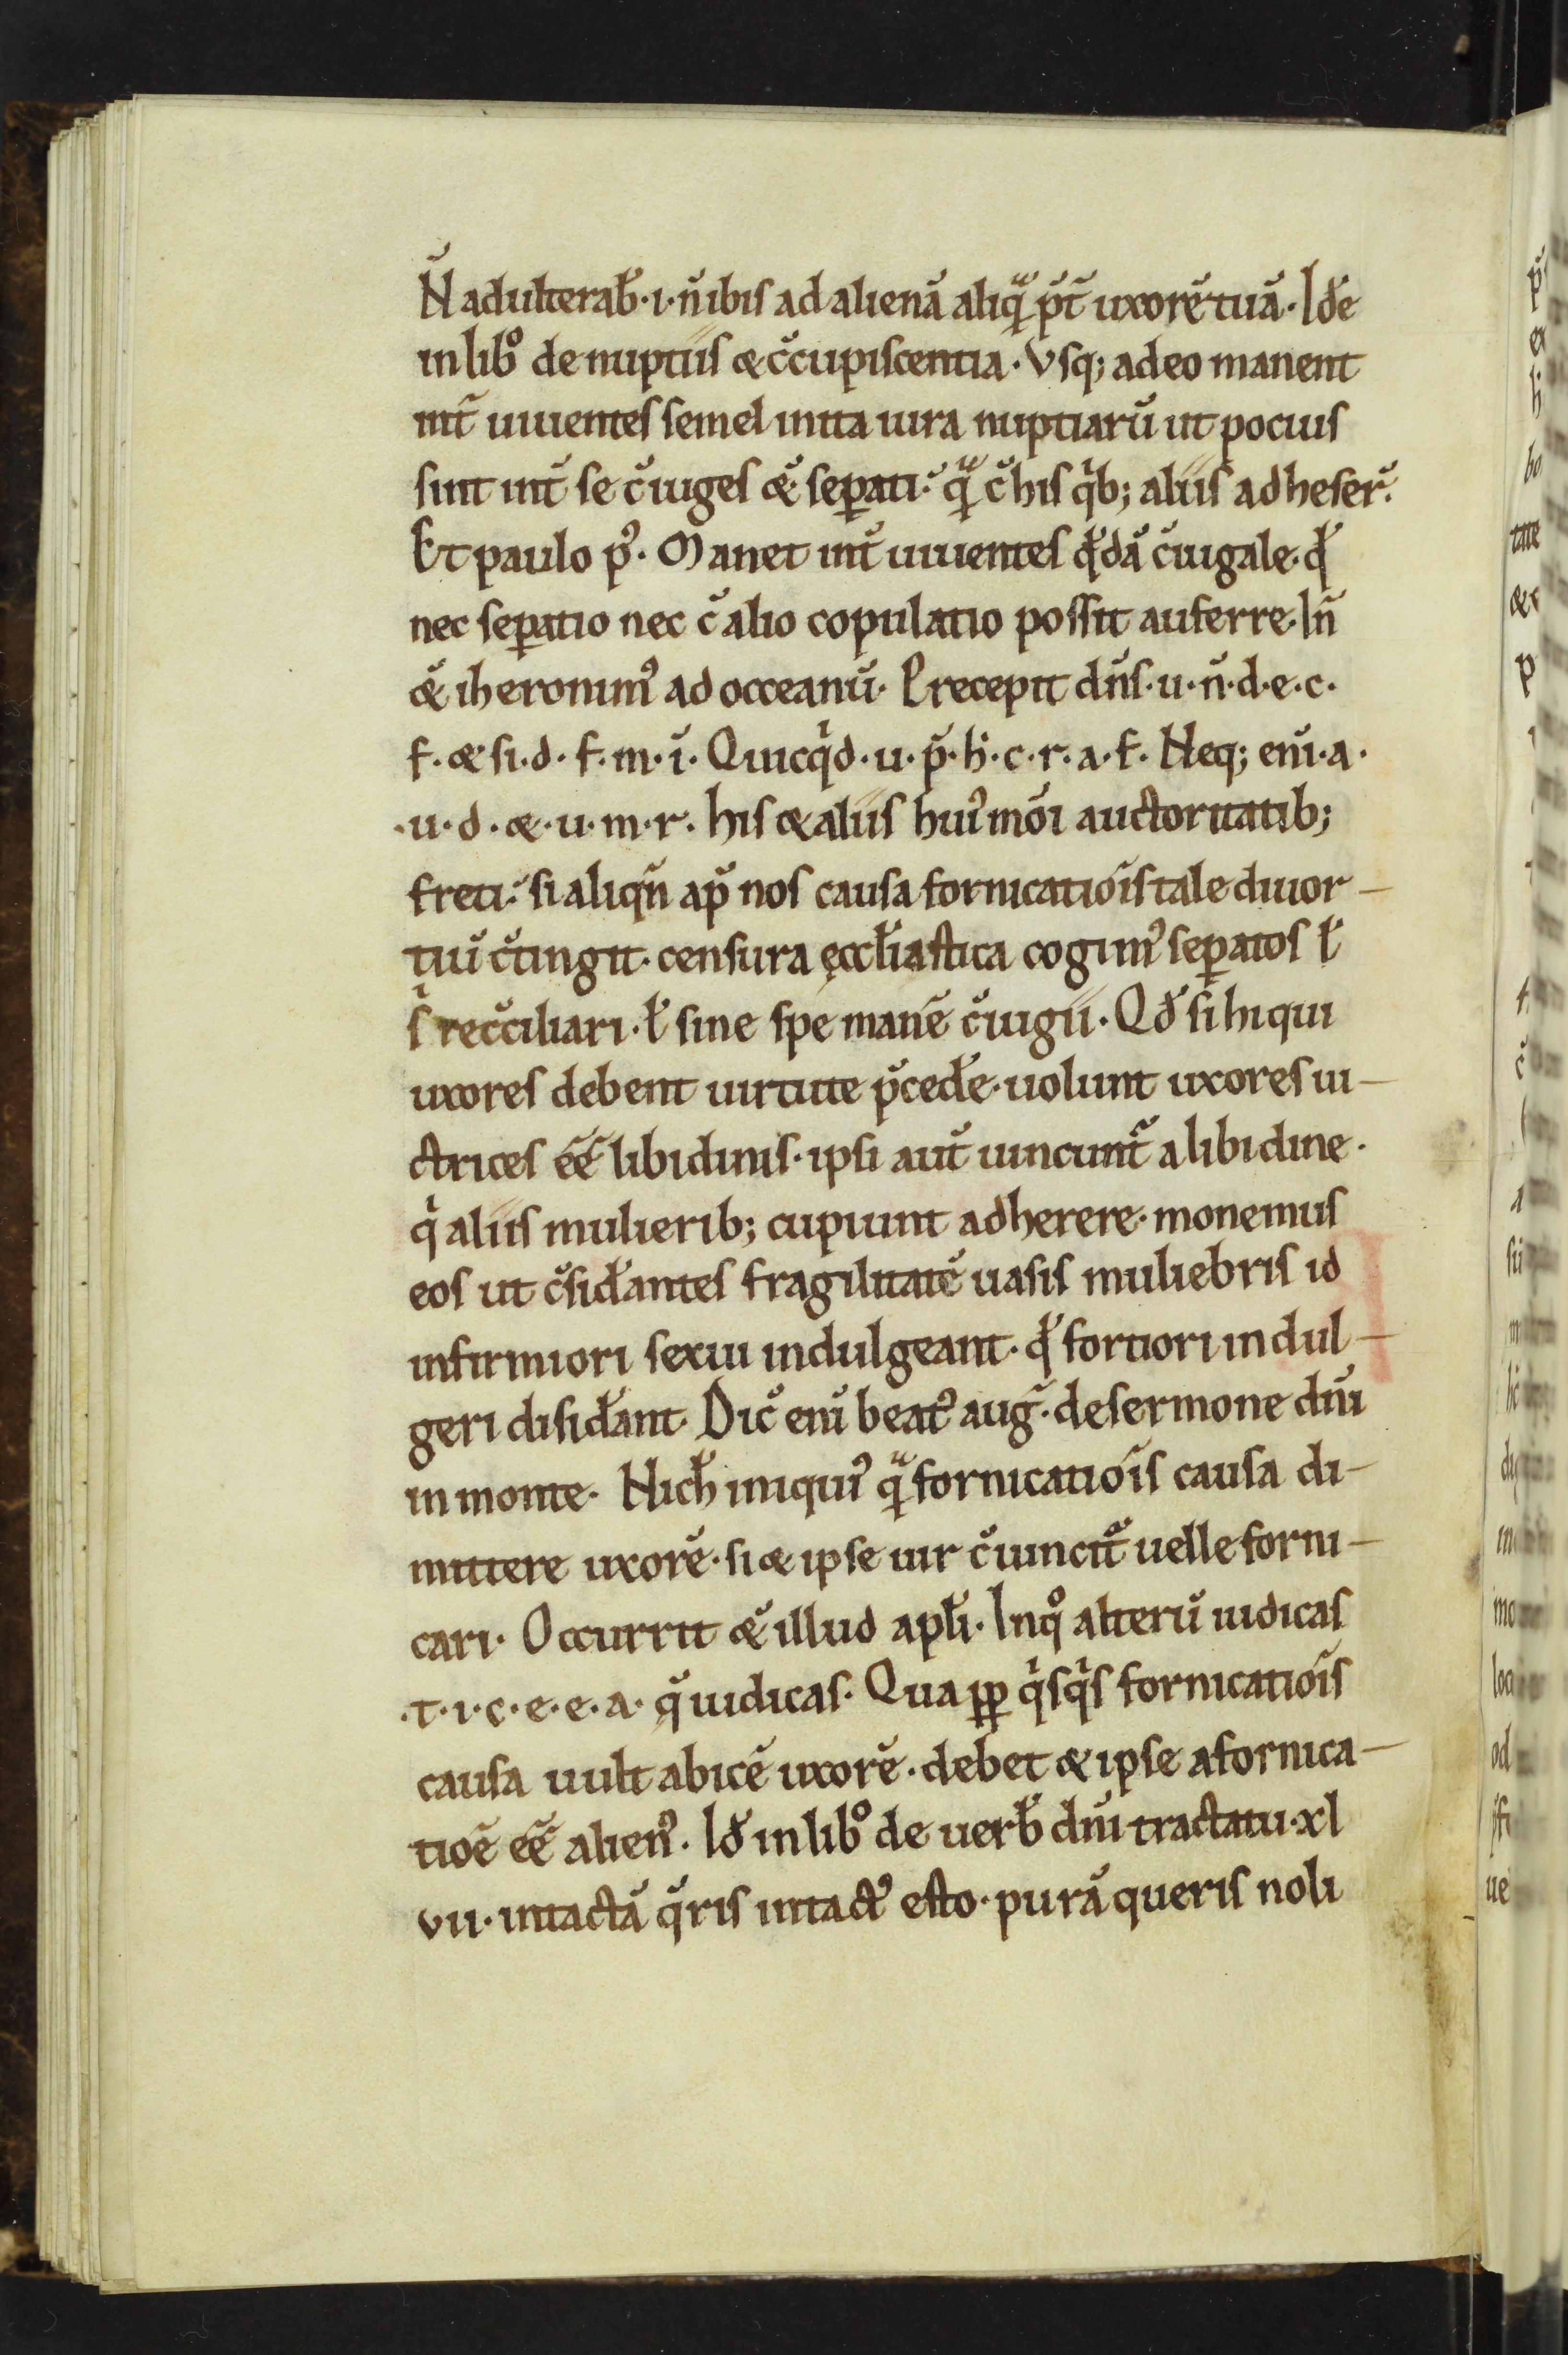 N̄ adulterab̄·i·n̄ ibis ad alienā aliqᷓ p̄t̄ uxorē tuā· Id̄e
in lib̊ de nuptiis ⁊ c̄cupiscentia· Vsq; adeo manent
int̄ uiuentes semel inita iura nuptiarū ut pocius
sint int̄ se c̄iuges &̄ seꝑati·᷎ qᷓ c̄ his qͥb; aliis adheser̄·
Et paulo p᷒· Manet int̄ uiuentes q̄dā c̄iugale· q̄
nec seꝑatio nec c̄ alio copulatio possit auferre· In̄
&̄ iheronim᷒ ad occeanū· Precepit dn̄s·u·n̄·d·e·c·
f·&·si·d·f·m·ī· Quicqͥd·u·p̄·h̄·c·r·a·f· Neq; enī·a·
·u·d·&·u·m·r· his & aliis hui᷒mōi auctoritatib;
freti·᷎ si aliqn̄ ap̄ nos causa fornicatiōis tale diuor-
tiū c̄tingit· censura ęccl̄iastica cogim᷒ seꝑatos l̄
sͥ recc̄iliari· l̄ sine spe manē c̄iugii· Qd̄ si hi qui
uxores debent uirtute p̄ced̄e· uolunt uxores ui-
ctrices eē̄ libidinis· ipsi aut̄ uincunt̄ a libidine·
qͥ aliis mulierib; cupiunt adherere· monemus
eos ut c̄sid̄antes fragilitatē uasis muliebris id
infirmiori sexui indulgeant· q̄ fortiori indul-
geri disid̄ant· Dic̄ enī beat᷒ auḡ· de sermone dn̄i
in monte· Nich̄ iniqui᷒ qᷓ fornicatiōis causa di-
mittere uxorē· si & ipse uir c̄iuncit̄ uelle forni-
cari· Occurrit &̄ illud apl̄i· Inq̊ alterū iudicas
·t·i·c·e·e·a· q̄ iudicas· Qua ꝓp qͥsqͥs fornicatiōis
causa uult abicē uxorē· debet & ipse a fornica-
tiōe eē̄ alien᷒· Id̄ in lib̊ de uerb̄ dn̄i tractatu·xl
vii· intactā q̄ris intact᷒ esto· purā queris noli